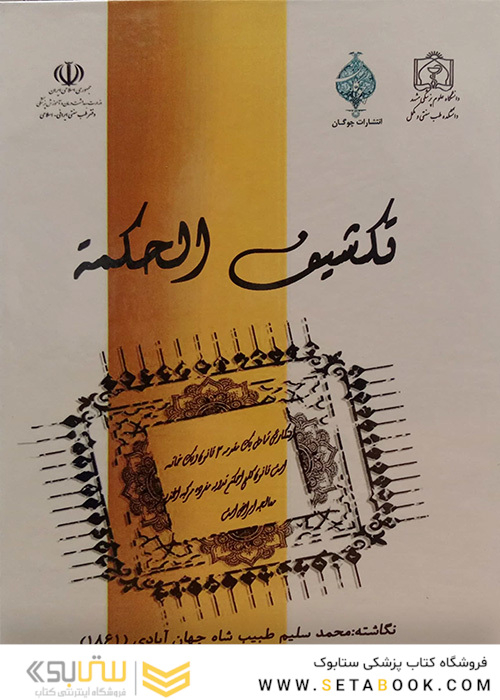 جمهوری اسلامی ایران
وزارت بهداشت درمان و آموزش پزشکی
دفتر طب سنتی ایرانی - اسلامی
انتشارات چوگان
دانشگاه علوم پزشکی مشهد
دانشکده طب سنتی و مکمل
تکشیف الحکمة
نگاشته: محمد سلیم طبیب شاه جهان آبادی (۱۸۶۱)
فروشگاه کتاب پزشکی ستابوک
WWW.SETABOOK.COM
ستابوک
فروشگاه اینترنتی کتاب